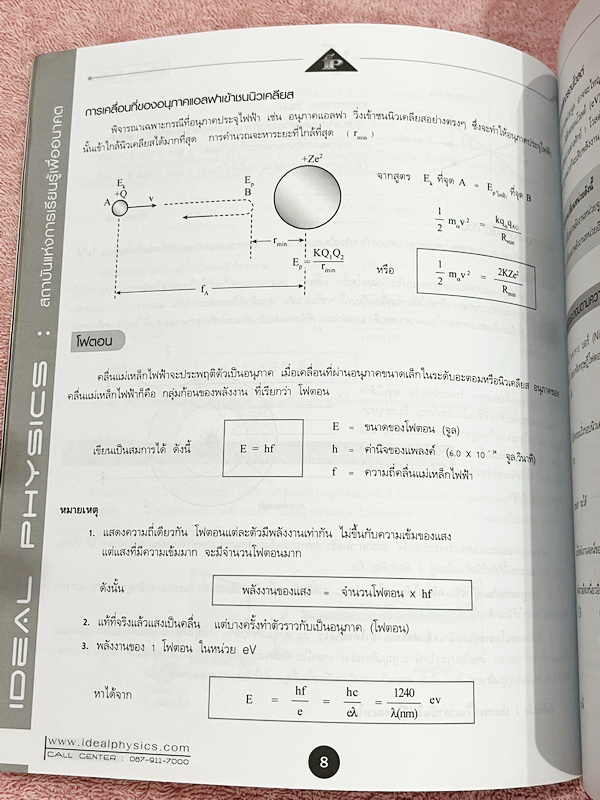 การเคลื่อนที่ของอนุภาคแอลฟาเข้าชนนิวเคลียส
พิจารณาเฉพาะกรณีที่อนุภาคประจุไฟฟ้า เช่น อนุภาคแอลฟา วิ่งเข้าชนนิวเคลียสอย่างตรงๆ ซึ่งจะทำให้อนุภาคประจุไฟฟ้า
นั้นเข้าใกล้นิวเคลียสได้มากที่สุด การคำนวณจะหาระยะที่ใกล้ที่สุด ( rmin )
+Ze²
Ek
+Q
A
v
Ep
B
rmin
Ep = KQ₁Q₂ / rmin
fA
จากสูตร Ek ที่จุด A = Ep ไฟฟ้า ที่จุด B
1/2 mαv² = kqαqAu / Rmin
หรือ 1/2 mαv² = 2KZe² / Rmin
โฟตอน
คลื่นแม่เหล็กไฟฟ้าจะประพฤติตัวเป็นอนุภาค เมื่อเคลื่อนที่ผ่านอนุภาคขนาดเล็กในระดับอะตอมหรือนิวเคลียส อนุภาคของ
คลื่นแม่เหล็กไฟฟ้าก็คือ กลุ่มก้อนของพลังงาน ที่เรียกว่า โฟตอน
เขียนเป็นสมการได้ ดังนี้
E = hf
E = ขนาดของโฟตอน (จูล)
h = ค่านิจของแพลงค์ (6.0 X 10⁻³⁴ จูล.วินาที)
f = ความถี่คลื่นแม่เหล็กไฟฟ้า
หมายเหตุ
1. แสดงความถี่เดียวกัน โฟตอนแต่ละตัวมีพลังงานเท่ากัน ไม่ขึ้นกับความเข้มของแสง
แต่แสงที่มีความเข้มมาก จะมีจำนวนโฟตอนมาก
ดังนั้น พลังงานของแสง = จำนวนโฟตอน x hf
2. แท้ที่จริงแล้วแสงเป็นคลื่น แต่บางครั้งทำตัวราวกับเป็นอนุภาค (โฟตอน)
3. พลังงานของ 1 โฟตอน ในหน่วย eV
หาได้จาก E = hf / e = hc / eλ = 1240 / λ(nm) ev
www.idealphysics.com
CALL CENTER : 087-911-7000
8
IDEAL PHYSICS : สถาบันแห่งการเรียนรู้เพื่ออนาคต